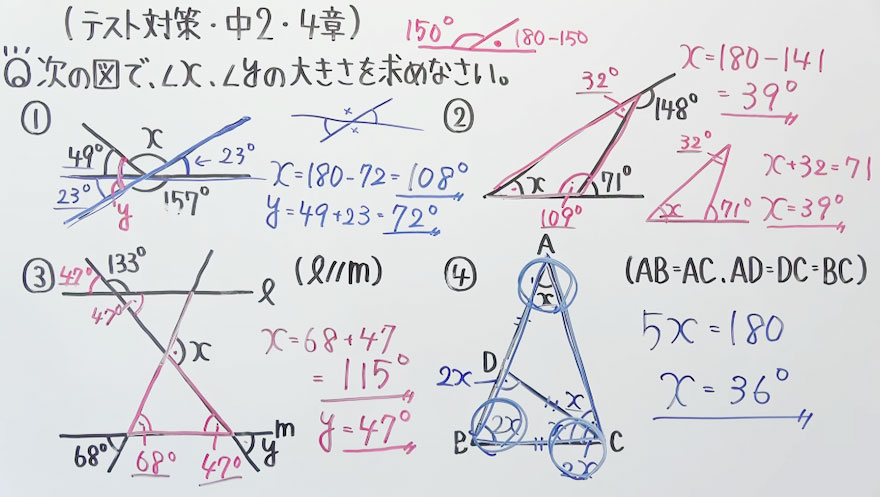 (テスト対策・中2・4章)
150° 180-150
Q 次の図で、∠x、∠yの大きさを求めなさい。
①
49° x 23°
23° y 157°
x x
x=180-72=108°
y=49+23=72°
②
32° 148°
x 109° 71°
x=180-141
=39°
32°
x 71°
x+32=71
x=39°
③
47° 133° l (l//m)
47°
x
68° 68° 47° y m
x=68+47
=115°
y=47°
④
A (AB=AC、AD=DC=BC)
x
D
2x x
B 2x x C
2x
5x=180
x=36°